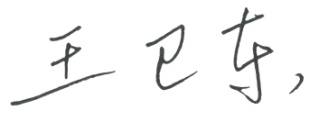 王卫东